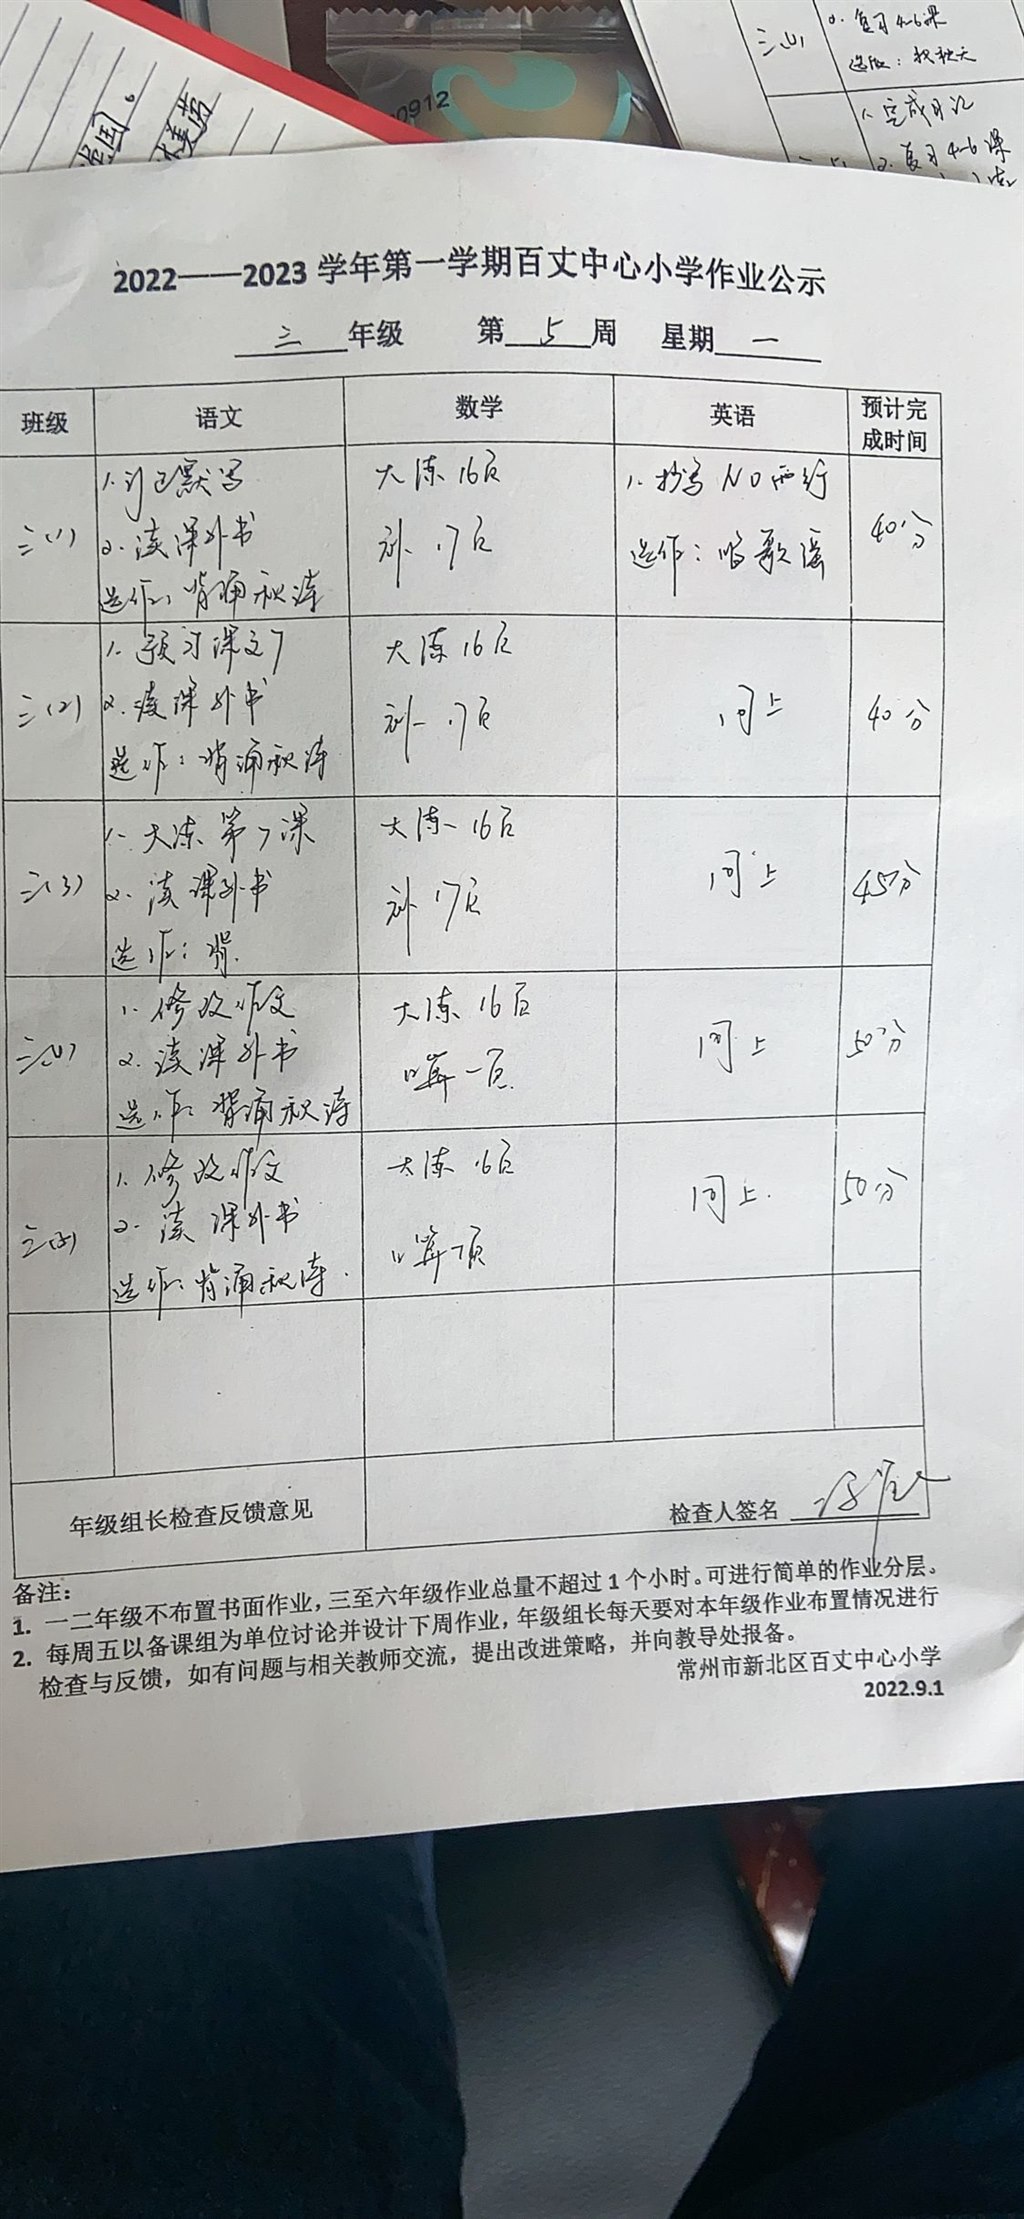 0912
三(4)
2. 复习4-6课
选做：找秋天
1. 完成日记
2. 复习4-6课
2022——2023 学年第一学期百丈中心小学作业公示
三 年级 第 5 周 星期 一
班级 语文 数学 英语 预计完成时间
三(1)
1. 订正默写
2. 读课外书
选作：背诵秋诗
大练16页
补17页
1. 抄写 N O 两行
选作：唱歌谣
40分
三(2)
1. 预习课文7
2. 读课外书
选作：背诵秋诗
大练16页
补17页
同上
40分
三(3)
1. 大练第7课
2. 读课外书
选作：背.
大练16页
补17页
同上
45分
三(4)
1. 修改作文
2. 读课外书
选作：背诵秋诗
大练16页
口算一页.
同上
50分
三(5)
1. 修改作文
2. 读课外书
选作：背诵秋诗.
大练16页
口算一页
同上.
50分
年级组长检查反馈意见
检查人签名
备注：
1. 一二年级不布置书面作业，三至六年级作业总量不超过 1 个小时。可进行简单的作业分层。
2. 每周五以备课组为单位讨论并设计下周作业，年级组长每天要对本年级作业布置情况进行
检查与反馈，如有问题与相关教师交流，提出改进策略，并向教导处报备。
常州市新北区百丈中心小学
2022.9.1